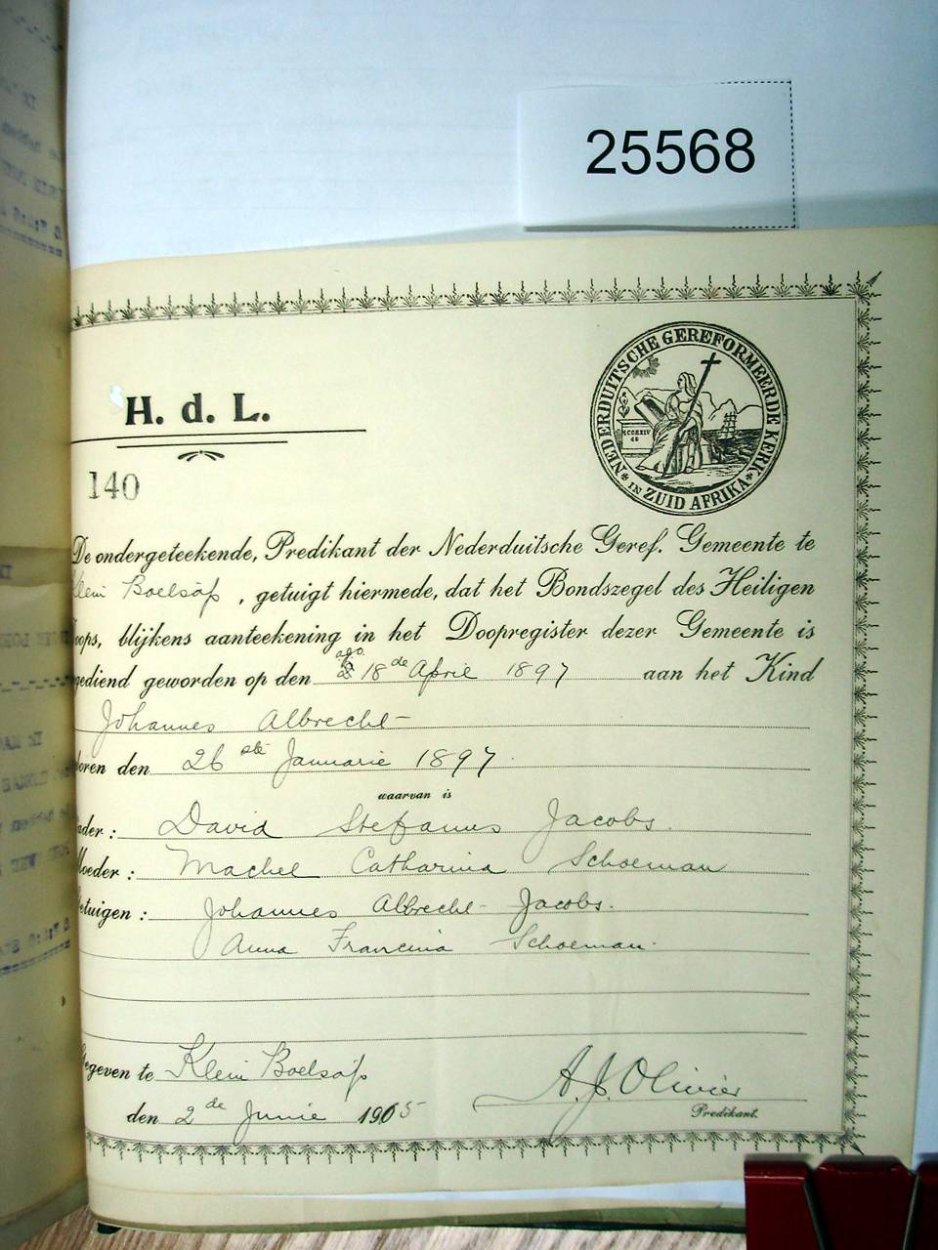 25568
NEDERDUITSCHE GEREFORMEERDE KERK
IN ZUID AFRIKA
H. d. L.
140
De ondergeteekende, Predikant der Nederduitsche Geref. Gemeente te
Klein Boelsap, getuigt hiermede, dat het Bondszegel des Heiligen
oops, blijkens aanteekening in het Doopregister dezer Gemeente is
gediend geworden op den 18de April 1897 aan het Kind
Johannes Albrecht
oren den 26ste Januarie 1897
waarvan is
ader: David Stefanus Jacobs.
Moeder: Machel Catharina Schoeman
etuigen: Johannes Albrecht Jacobs.
Anna Francina Schoeman.
Gegeven te Klein Boelsap
den 2de Junie 1905
A. J. Olivier
Predikant.